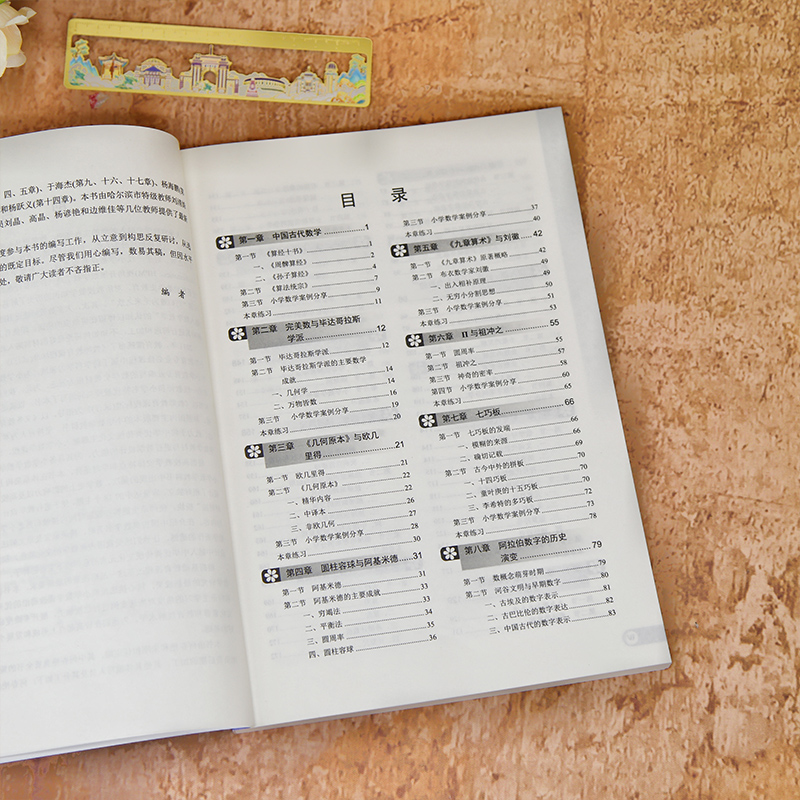 四、五章)、于海杰(第九、十六、十七章)、杨海鹏(第
和杨跃义(第十四章)。本书由哈尔滨市特级教师刘
刘晶、高晶、杨谚艳和边维佳等几位教师提供了最新
度参与本书的编写工作,从立意到构思反复研讨,从选
的既定目标。尽管我们用心编写,数易其稿,但因水平
处,敬请广大读者不吝指正。
编 者
目 录
第一章 中国古代数学 1
第一节 《算经十书》 1
一、《周髀算经》 2
二、《孙子算经》 4
第二节 《算法统宗》 9
第三节 小学数学案例分享 9
本章练习 11
第二章 完美数与毕达哥拉斯
学派 12
第一节 毕达哥拉斯学派 12
第二节 毕达哥拉斯学派的主要数学
成就 14
一、几何学 14
二、万物皆数 16
第三节 小学数学案例分享 19
本章练习 20
第三章 《几何原本》与欧几
里得 21
第一节 欧几里得 21
第二节 《几何原本》 22
一、精华内容 22
二、中译本 26
三、非欧几何 27
第三节 小学数学案例分享 28
本章练习 30
第四章 圆柱容球与阿基米德 31
第一节 阿基米德 31
第二节 阿基米德的主要成就 33
一、穷竭法 33
二、平衡法 34
三、圆周率 35
四、圆柱容球 36
第三节 小学数学案例分享 37
本章练习 40
第五章 《九章算术》与刘徽 42
第一节 《九章算术》原著概略 42
第二节 布衣数学家刘徽 49
一、出入相补原理 49
二、无穷小分割思想 50
第三节 小学数学案例分享 51
本章练习 53
第六章 Π与祖冲之 55
第一节 圆周率 55
第二节 祖冲之 57
第三节 神奇的密率 58
第四节 小学数学案例分享 60
本章练习 65
第七章 七巧板 66
第一节 七巧板的发端 66
一、模糊的来源 69
二、确切记载 69
第二节 古今中外的拼板 70
一、十四巧板 70
二、童叶庚的十五巧板 70
三、李希特的多巧板 72
第三节 小学数学案例分享 73
本章练习 78
第八章 阿拉伯数字的历史
演变 79
第一节 数概念萌芽时期 79
第二节 河谷文明与早期数字 80
一、古埃及的数字表示 81
二、古巴比伦的数字表达 82
三、中国古代的数字表示 83